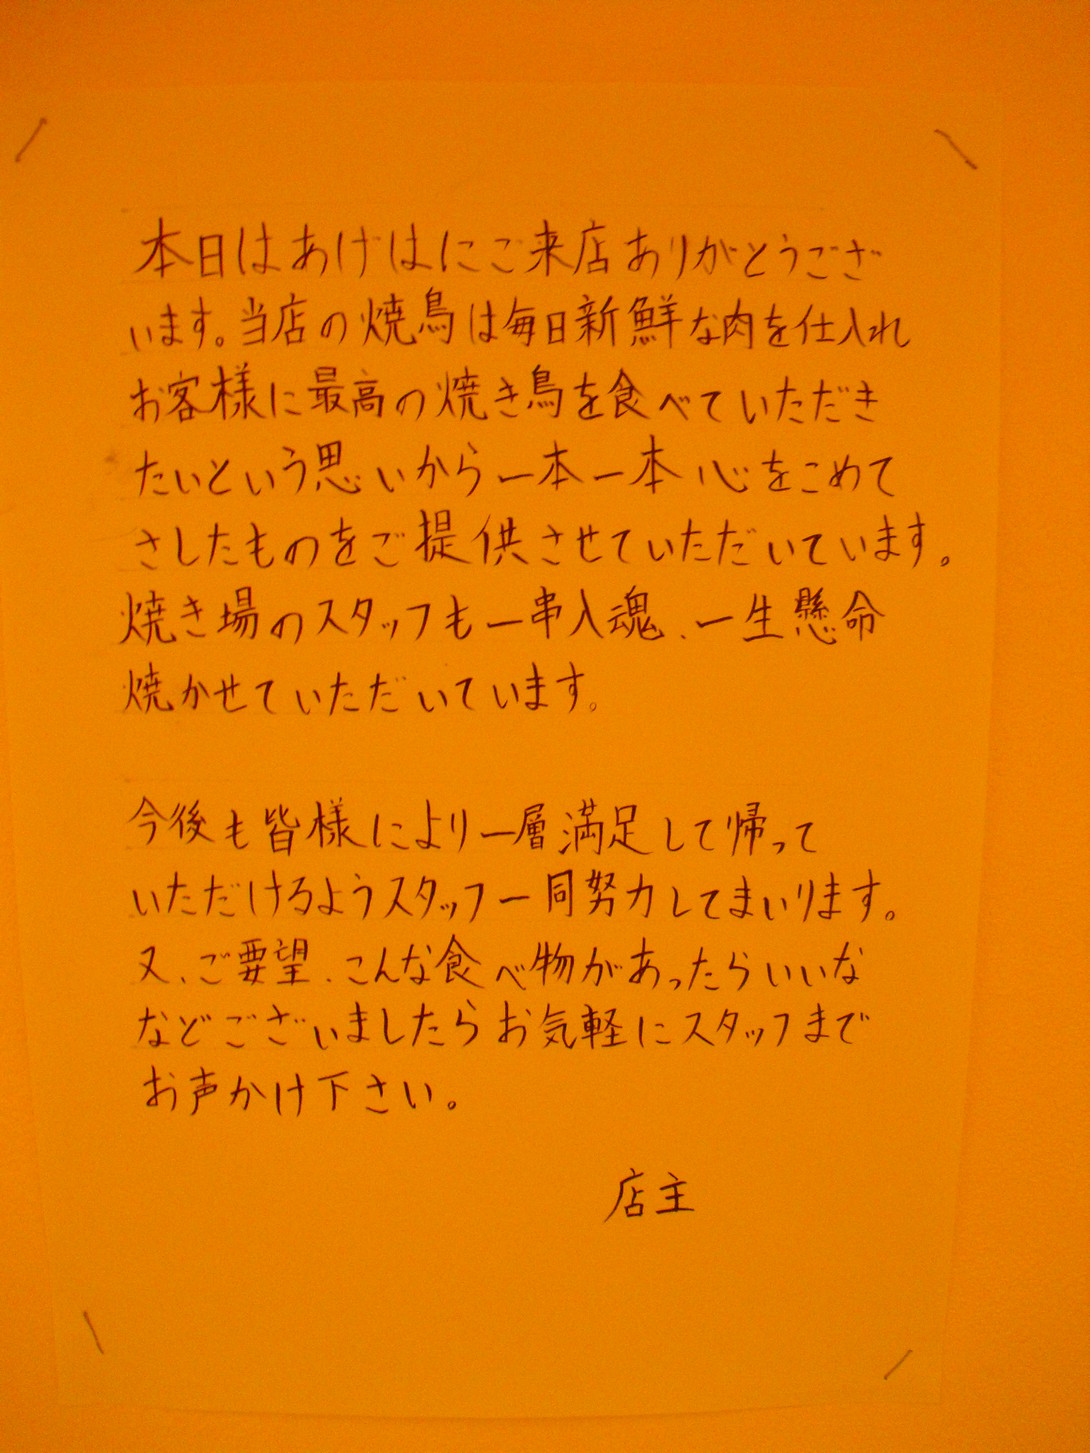 本日はあけはにご来店ありがとうござ
います。当店の焼鳥は毎日新鮮な肉を仕入れ
お客様に最高の焼き鳥を食べていただき
たいという思いから一本一本心をこめて
さしたものをご提供させていただいています。
焼き場のスタッフも一串入魂、一生懸命
焼かせていただいています。
今後も皆様により一層満足して帰って
いただけるようスタッフ一同努力してまいります。
又、ご要望、こんな食べ物があったらいいな
などございましたらお気軽にスタッフまで
お声かけ下さい。
店主